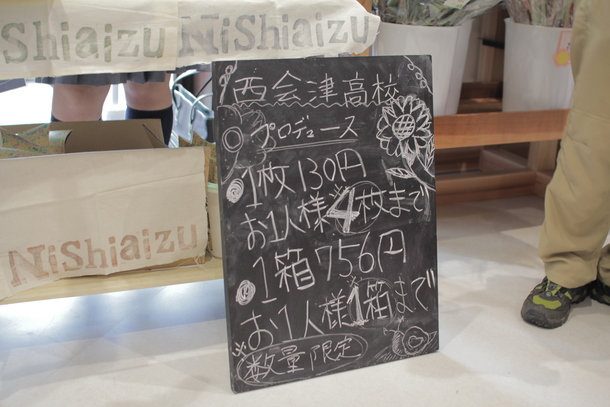 Shiaizu NiShiaizu
西会津高校
プロデュース
1枚130円
お1人様※4枚まで
1箱756円
お1人様※1箱まで
※数量限定
NiShiaizu